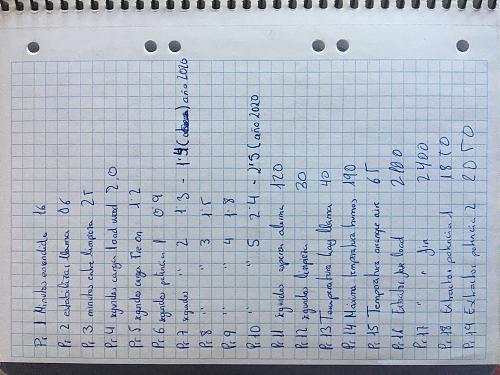 Pr 1 Minutos encendido 16
Pr. 2 estabilizar llama 06
Pr. 3 minutos entre limpieza 25
Pr. 4 segundos carga load wood 2,0
Pr. 5 segundos carga Fire on 1'2
Pr. 6 segundos potencia 1 0'9
Pr. 7 segundos " 2 1'3 - 1'4 (año 2020
Pr. 8 " " 3 1'5
Pr. 9 " " 4 1'8
Pr. 10 " " 5 2'4 - 2'5 (año 2020
Pr. 11 segundos espera alarma 120
Pr. 12 segundos limpieza 30
Pr. 13 Temperatura hay llama 40
Pr. 14 Maxima temperatura humos 190
Pr. 15 Temperatura arranque aire 65
Pr. 16 Extractor fire load
Pr. 17 " " fin 2400
Pr. 18 Extractor potencia 1 1850
Pr. 19 Extractor potencia 2 2050